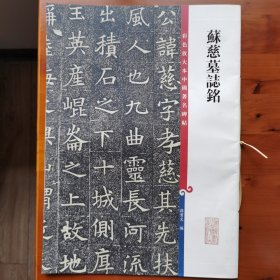 蘇慈墓誌銘
彩色放大本中國著名碑帖
公諱慈字孝慈其先
風人也九曲靈長河流
出積石之下十城側厚
玉英產崐崙之上故地